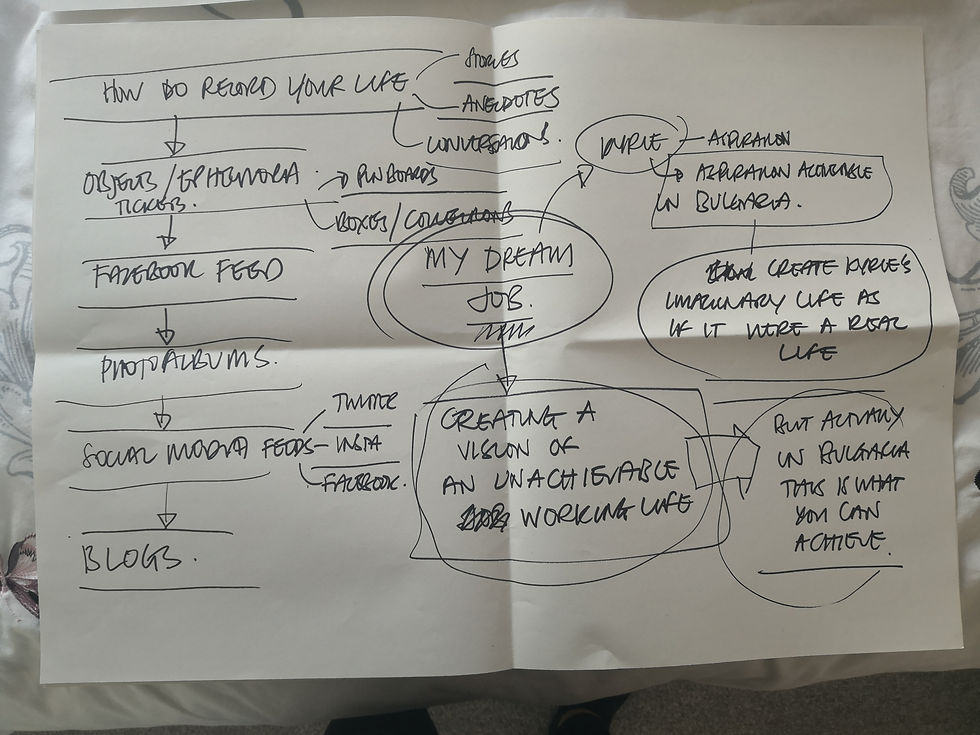 HOW DO RECORD YOUR LIFE
STORIES
ANECDOTES
CONVERSATIONS.
OBJECTS/EPHEMORA
TICKETS.
PINBOARDS
BOXES/COLLECTIONS
FACEBOOK FEED
PHOTOALBUMS.
SOCIAL MEDIA FEEDS
TWITTER
INSTA
FACEBOOK.
BLOGS.
MY DREAM
JOB.
ASPIRATION
ASPIRATION ACHIEVABLE
IN BULGARIA.
CREATE
IMAGINARY LIFE AS
IF IT WERE A REAL
LIFE
CREATING A
VISION OF
AN UNACHIEVABLE
WORKING LIFE
BUT ACTUALLY
IN BULGARIA
THIS IS WHAT
YOU CAN
ACHIEVE.